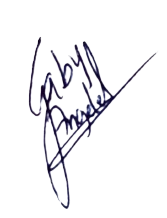 Gaby
Angeles